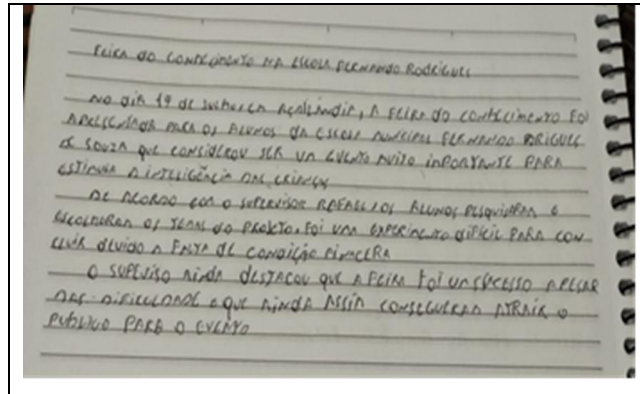 FEIRA DO CONHECIMENTO NA ESCOLA FERNANDO RODRIGUES
NO DIA 19 DE EM AÇAILÂNDIA, A FEIRA DO CONHECIMENTO FOI
APRESENTADA PARA OS ALUNOS DA ESCOLA MUNICIPAL FERNANDO RODRIGUES
DE SOUZA QUE CONSIDEROU SER UM EVENTO MUITO INPORTANTE PARA
ESTIMULA A INTELIGÊNCIA DAS CRIANÇAS
DE ACORDO COM O SUPERVISOR RAFAEL, OS ALUNOS PESQUISARAM E
ESCOLHERAM OS TEMAS DO PROJETO, FOI UMA EXPERIMENTO DIFÍCIL PARA CON-
CLUIR DEVIDO A FALTA DE CONDIÇÃO FINACERA
O SUPERVISO AINDA DESTACOU QUE A FEIRA FOI UM SUCESSO APESAR
DAS DIFICULDADE E QUE AINDA ASSIN CONSEGUERAM ATRAIR O
PUBLICO PARA O EVENTO